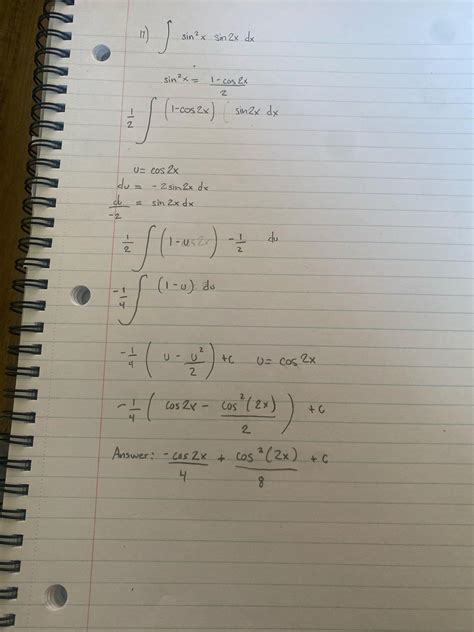 17) ∫ sin²x sin2x dx
sin²x = 1-cos2x / 2
1/2 ∫ (1-cos2x) ( sin2x dx
u = cos2x
du = -2sin2x dx
du/-2 = sin2x dx
1/2 ∫ (1-u) -1/2 du
-1/4 ∫ (1-u) du
-1/4 (u - u²/2) +c u = cos2x
-1/4 (cos2x - cos²(2x)/2) + c
Answer: -cos2x/4 + cos²(2x)/8 + c